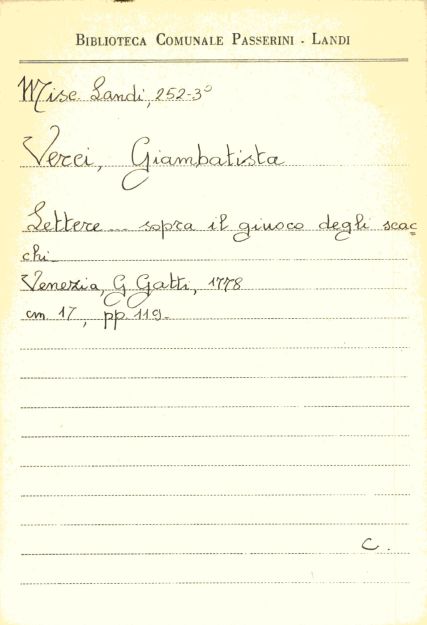 BIBLIOTECA COMUNALE PASSERINI - LANDI
Misc. Landi, 252-3º
Verci, Giambatista
Lettere... sopra il giuoco degli scac=
chi.
Venezia, G Gatti, 1778
cm 17, pp. 119.
C.